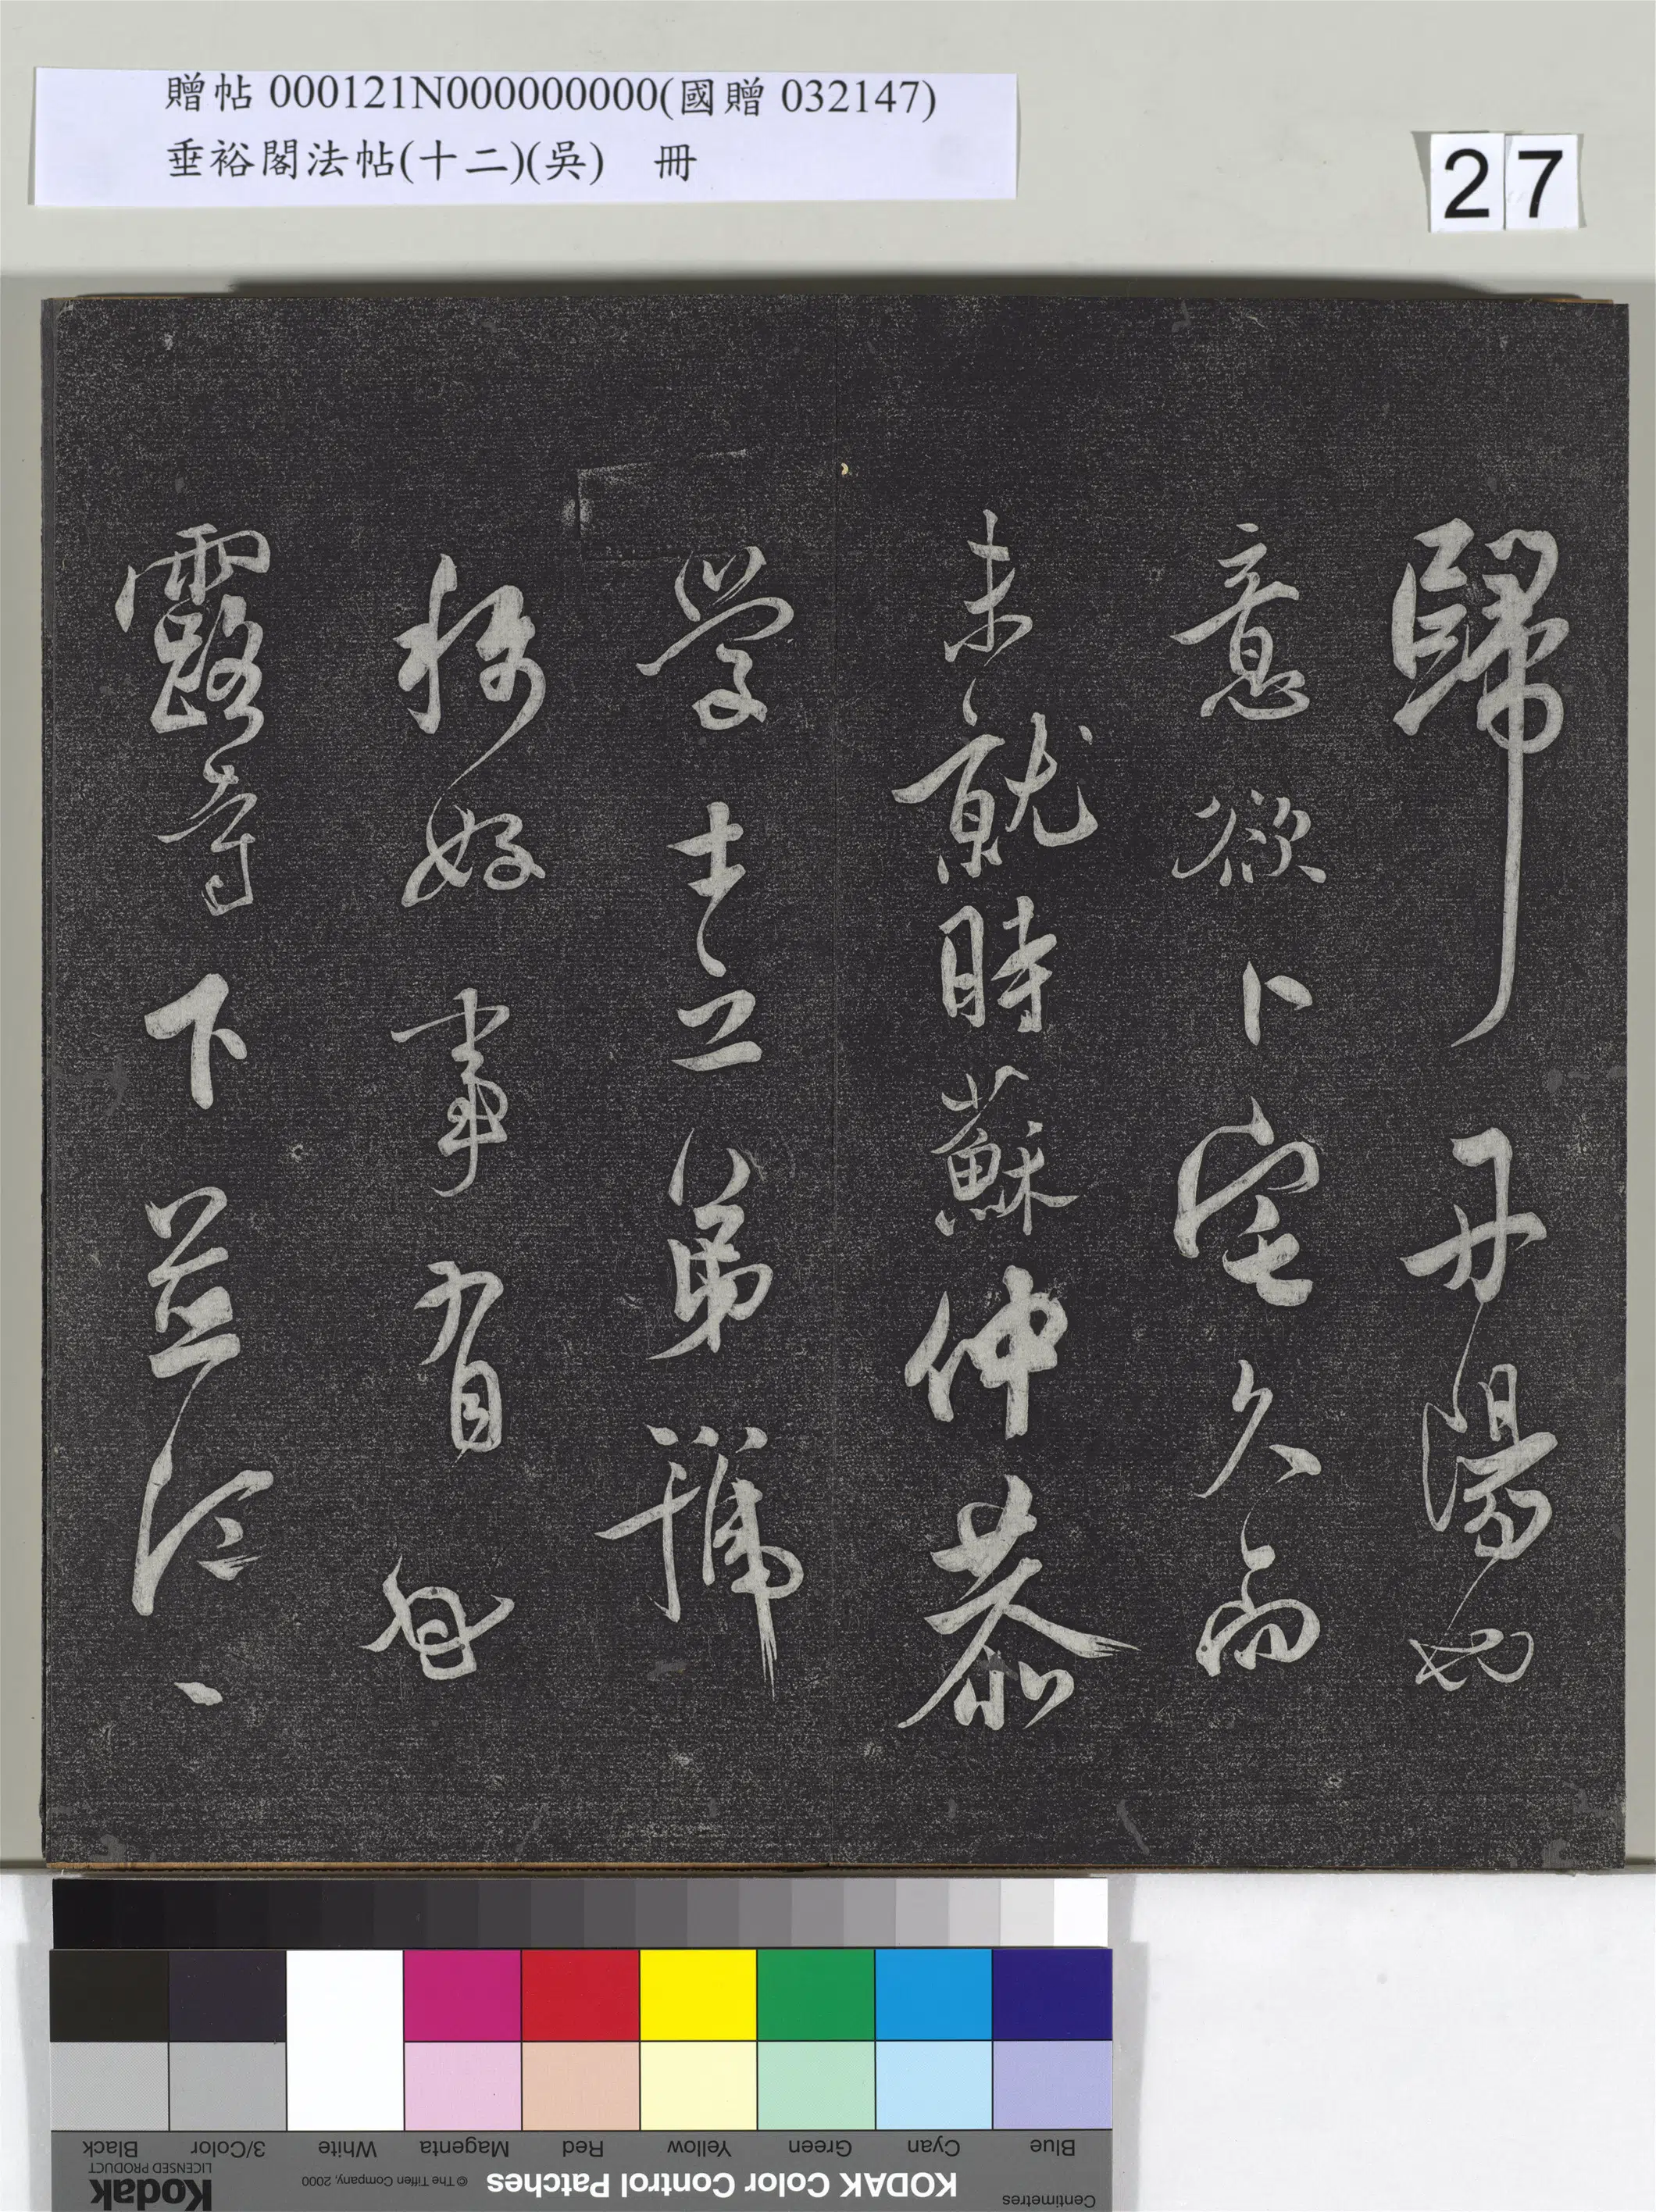 贈帖 000121N000000000(國贈 032147)
垂裕閣法帖(十二)(吳) 冊
27
歸丹陽也
意欲卜宅久而
未就時蘇仲恭
學士之弟稱
好事有
露寺下並江
Blue Cyan Green Yellow Red Magenta White 3/Color Black
Centimetres
KODAK Color Control Patches
© The Tiffen Company, 2000
Kodak
LICENSED PRODUCT